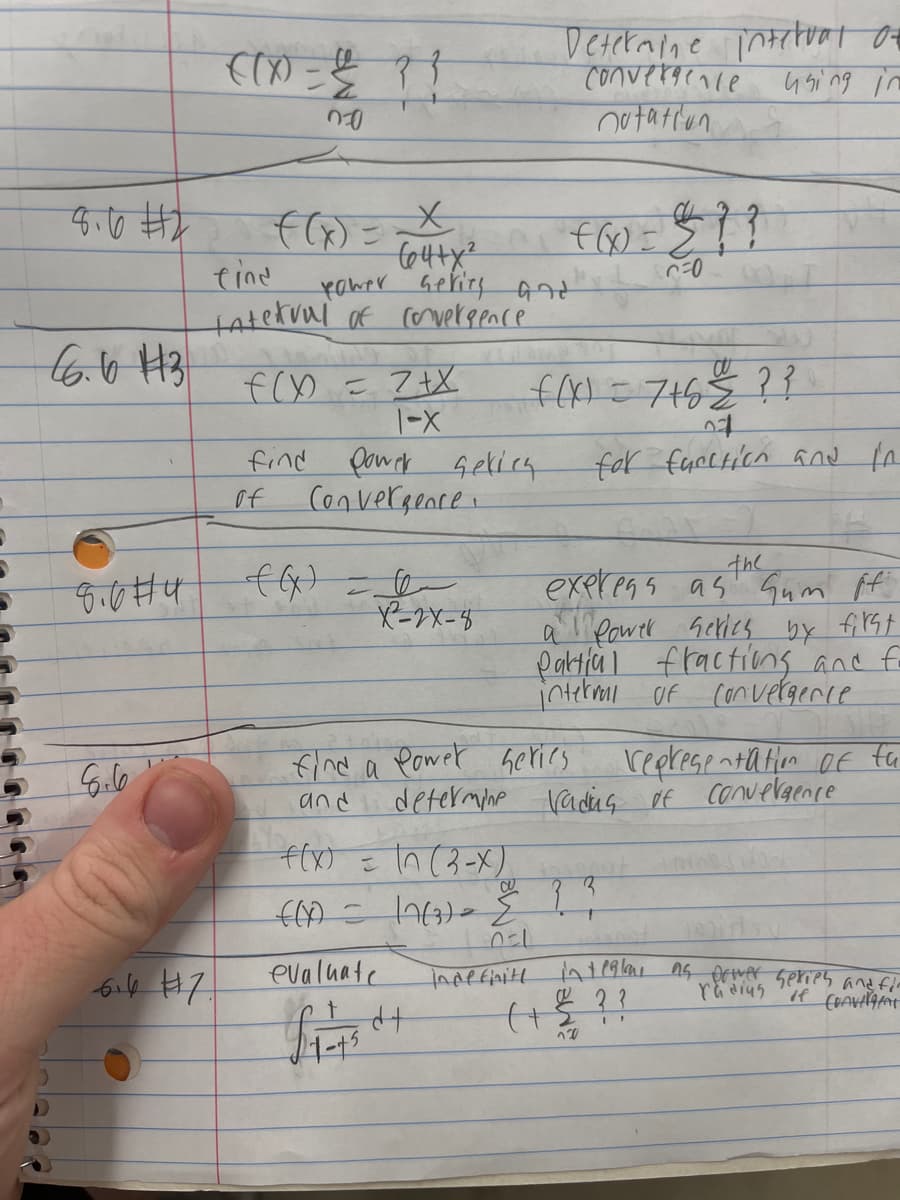 Determine interval of
f(x) = ∞ Σ n=0 ? ? convergence using in
notation
8.6 #2 f(x) = x / 64+x² f(x) = ∞ Σ n=0 ? ?
find power series and
interval of convergence
8.6 #3 f(x) = 7+x / 1-x f(x) = 7+8 ∞ Σ n=1 ? ?
find power series for function and in
of convergence.
8.6 #4 f(x) = 6 / x²-2x-8 express as the sum of
a power series by first
partial fractions and f
interval of convergence
8.6 find a power series representation of fu
and determine radius of convergence
f(x) = ln(3-x)
f(x) = ln(3) - ∞ Σ n=1 ? ?
8.6 #7. evaluate indefinite integral as power series and fi
radius of convergence
∫ t / 1-t⁵ dt C + ∞ Σ n=0 ? ?